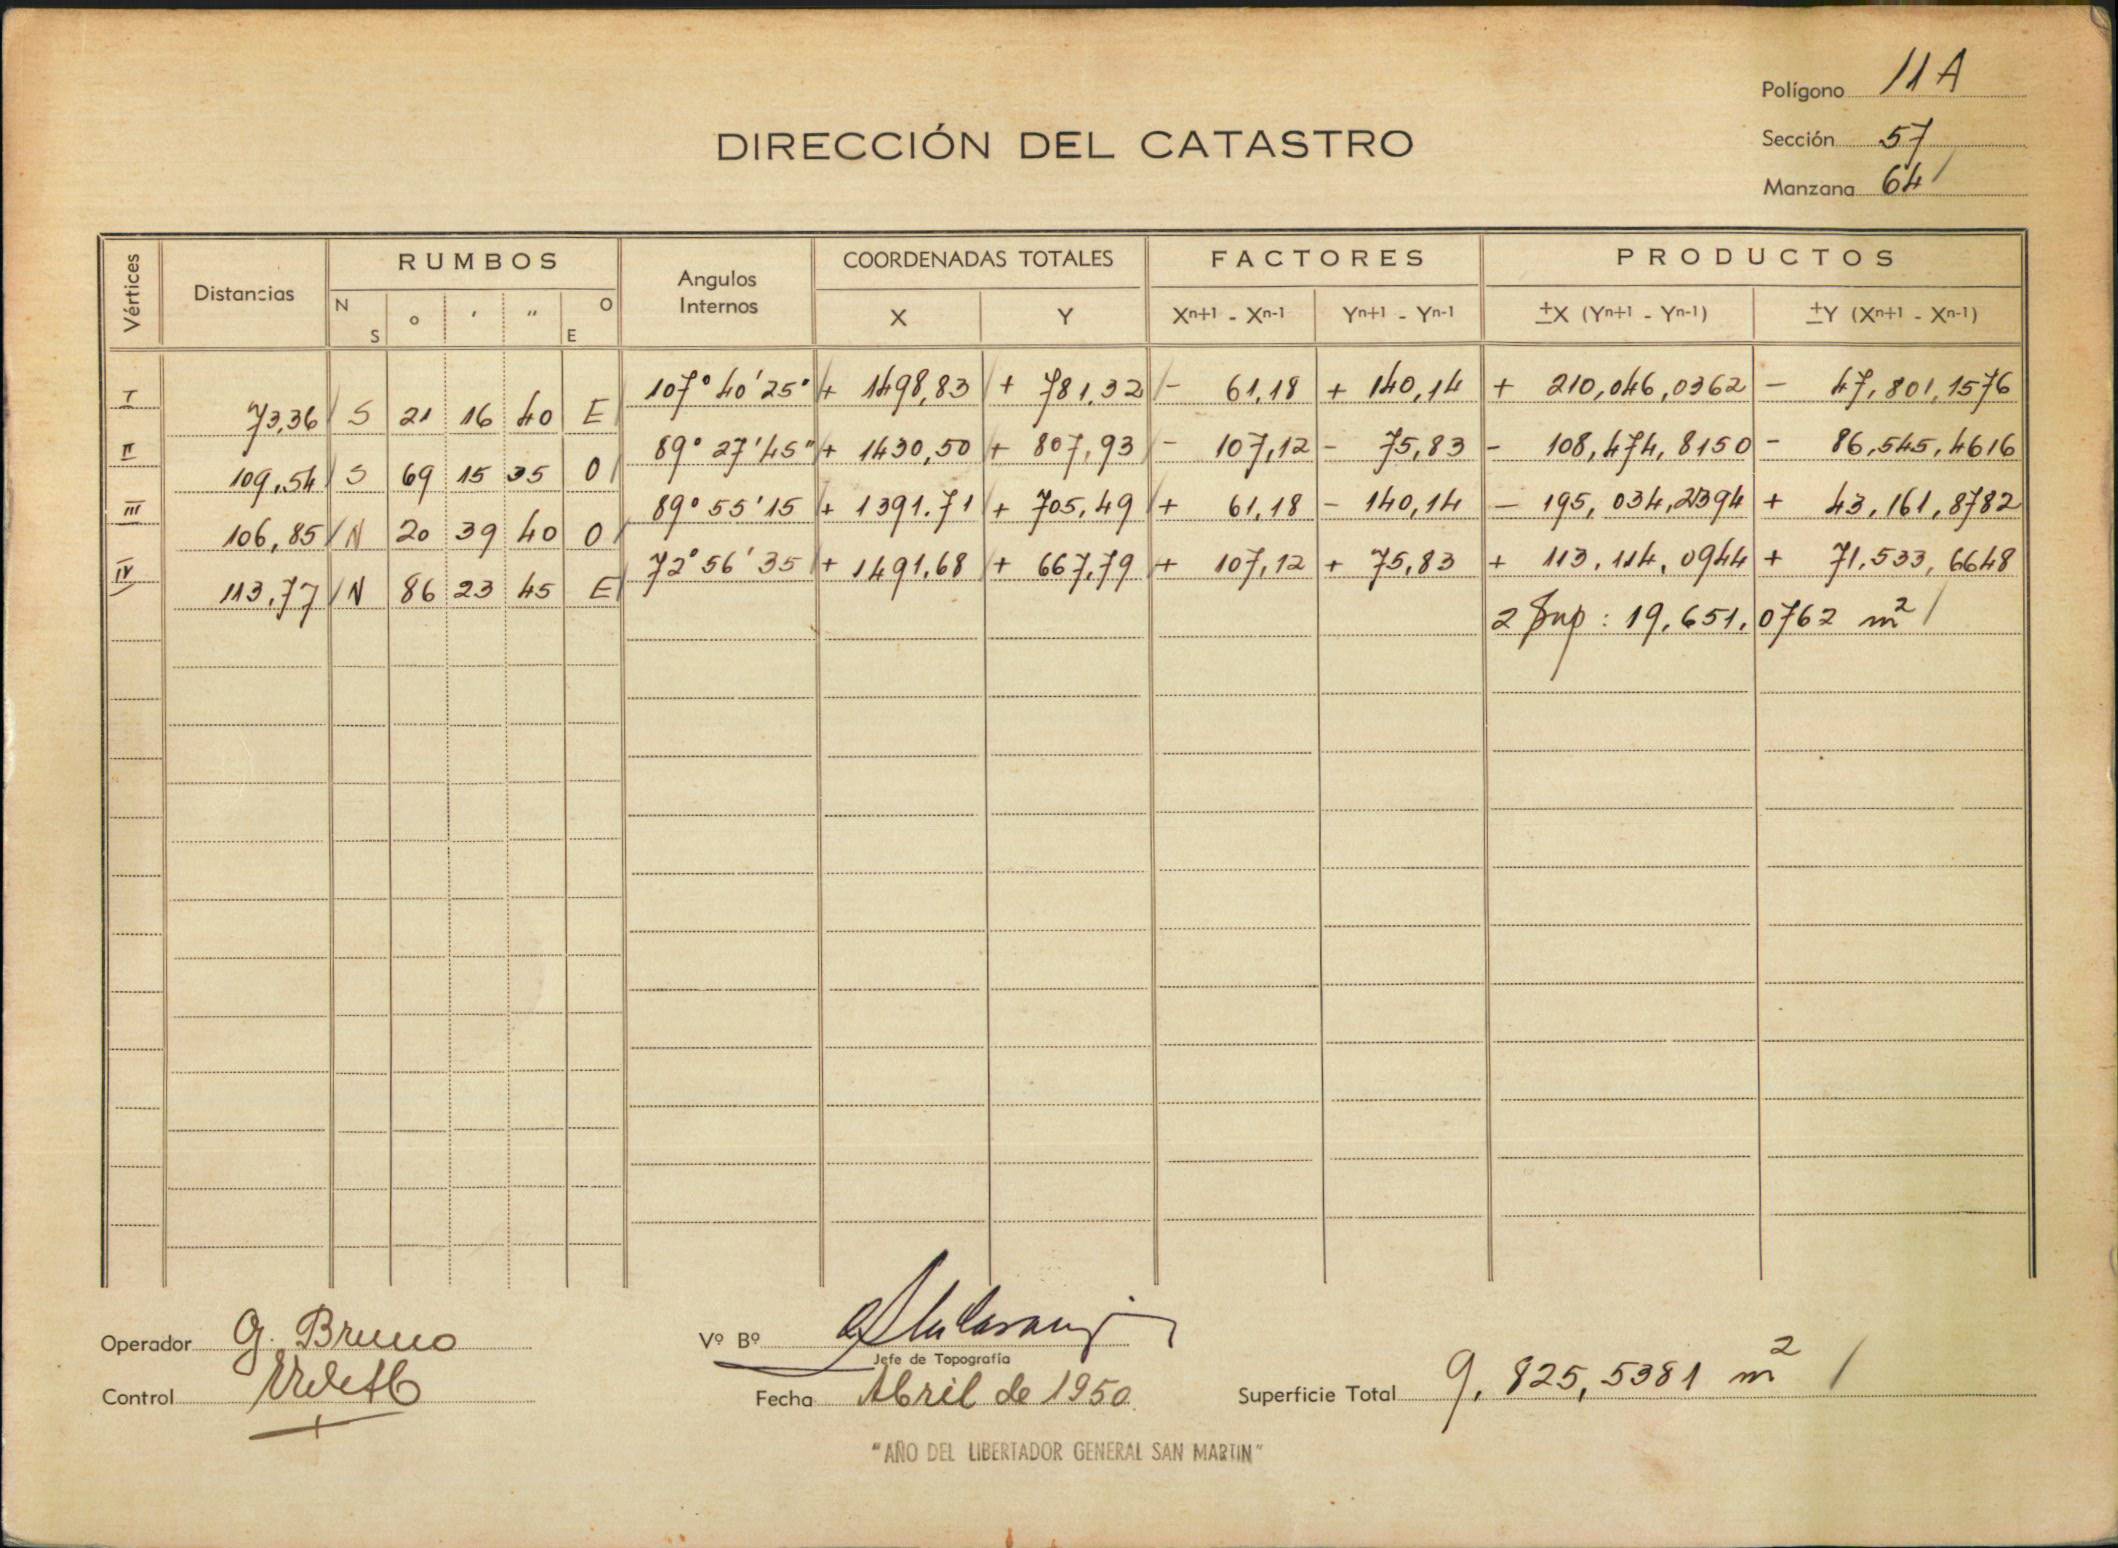 Polígono 11A
DIRECCIÓN DEL CATASTRO
Sección 57
Manzana 64
Vértices Distancias RUMBOS Angulos Internos COORDENADAS TOTALES FACTORES PRODUCTOS
N S ° ' " O E X Y Xn+1 - Xn-1 Yn+1 - Yn-1 ±X (Yn+1 - Yn-1) ±Y (Xn+1 - Xn-1)
I 107° 40' 25" + 1498,83 + 781,32 - 61,18 + 140,14 + 210,046,0362 - 47,801,1576
73,36 S 21 16 40 E
II 89° 27' 45" + 1430,50 + 807,93 - 107,12 - 75,83 - 108,474,8150 - 86,545,4616
109,54 S 69 15 35 O
III 89° 55' 15 + 1391.71 + 705,49 + 61,18 - 140,14 - 195,034,2394 + 43,161,8782
106,85 N 20 39 40 O
IV 72° 56' 35 + 1491,68 + 667,79 + 107,12 + 75,83 + 113,114,0944 + 71,533,6648
113,77 N 86 23 45 E
2 Sup : 19,651,0762 m2
Operador G. Bruno
Vº Bº
Jefe de Topografía
Control
Fecha Abril de 1950
Superficie Total 9,825,5381 m2
"AÑO DEL LIBERTADOR GENERAL SAN MARTIN"